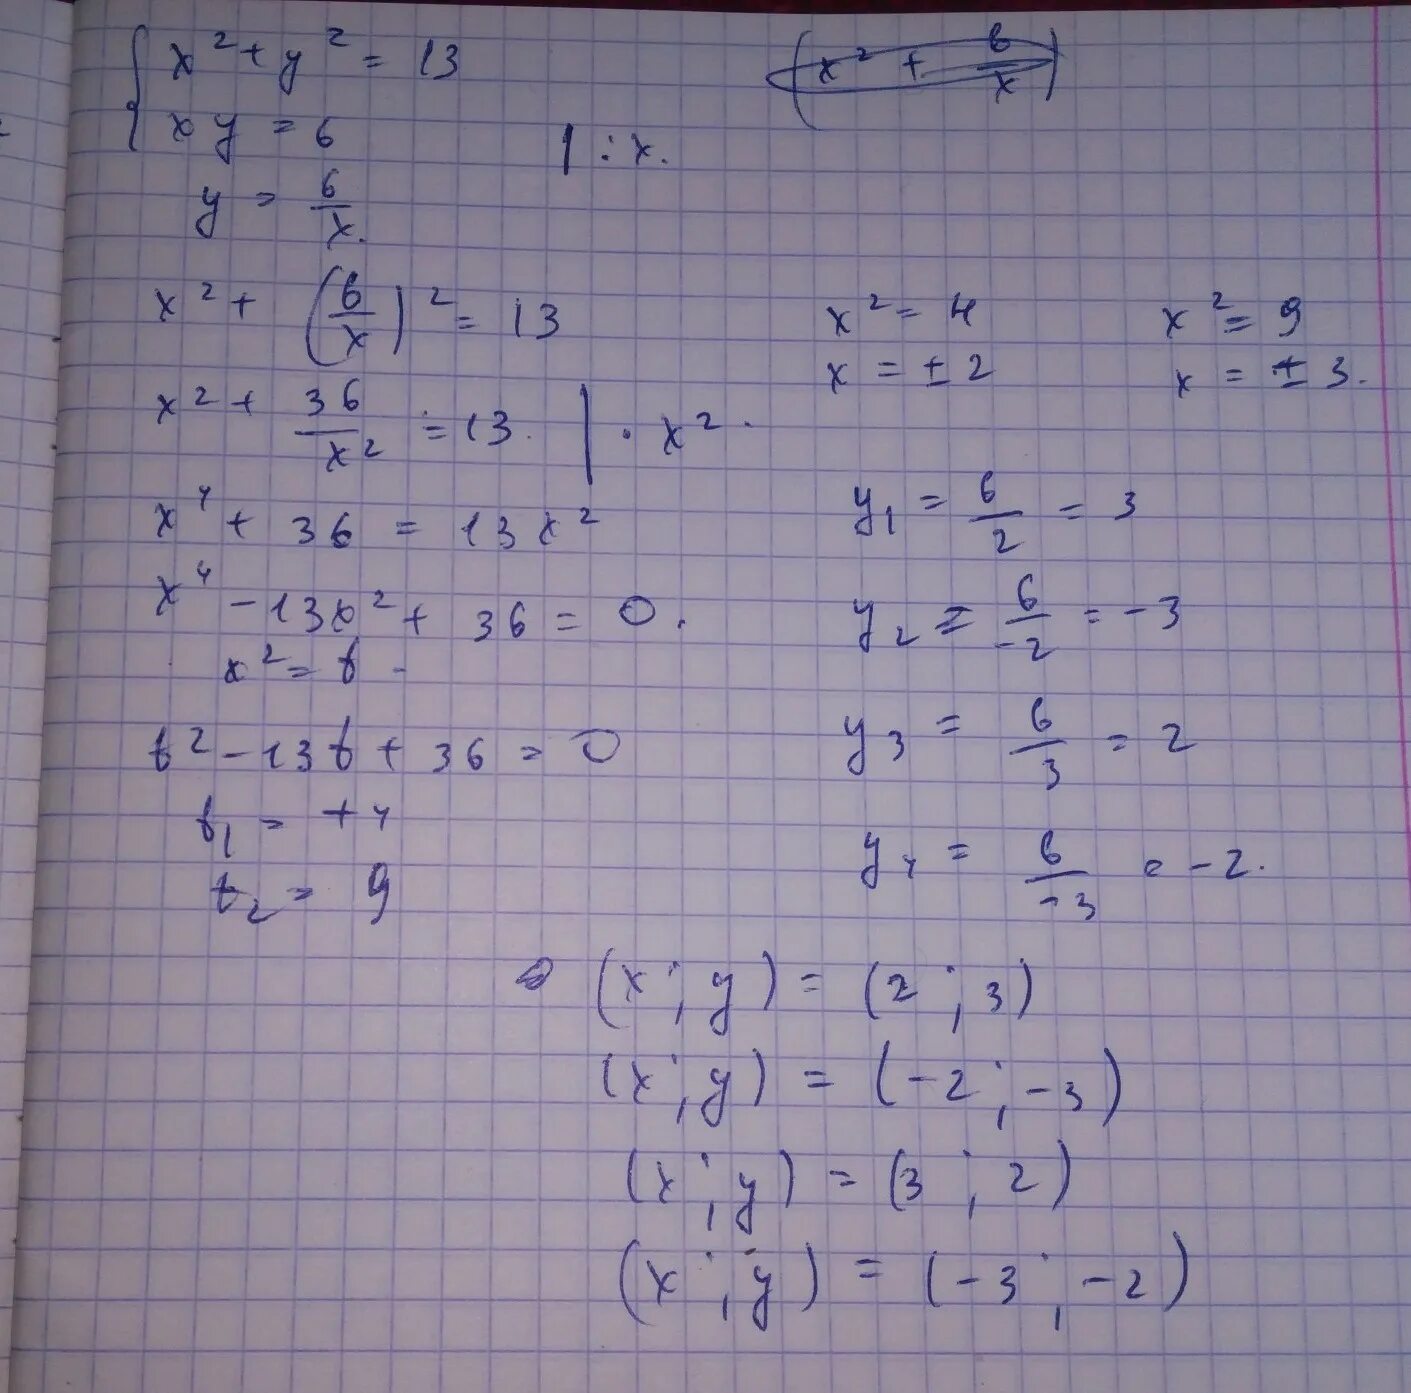 x² + y² = 13
xy = 6 | : x.
y = 6/x.
x² + (6/x)² = 13
x² + 36/x² = 13. | · x².
x⁴ + 36 = 13x²
x⁴ - 13x² + 36 = 0.
x² = t -
t² - 13t + 36 = 0
t₁ = +4
t₂ = 9
(x² + 6/x)
x² = 4 x² = 9
x = ± 2 x = ± 3.
y₁ = 6/2 = 3
y₂ = 6/-2 = -3
y₃ = 6/3 = 2
y₄ = 6/-3 = -2.
(x ; y) = (2 ; 3)
(x ; y) = (-2 ; -3)
(x ; y) = (3 ; 2)
(x ; y) = (-3 ; -2)